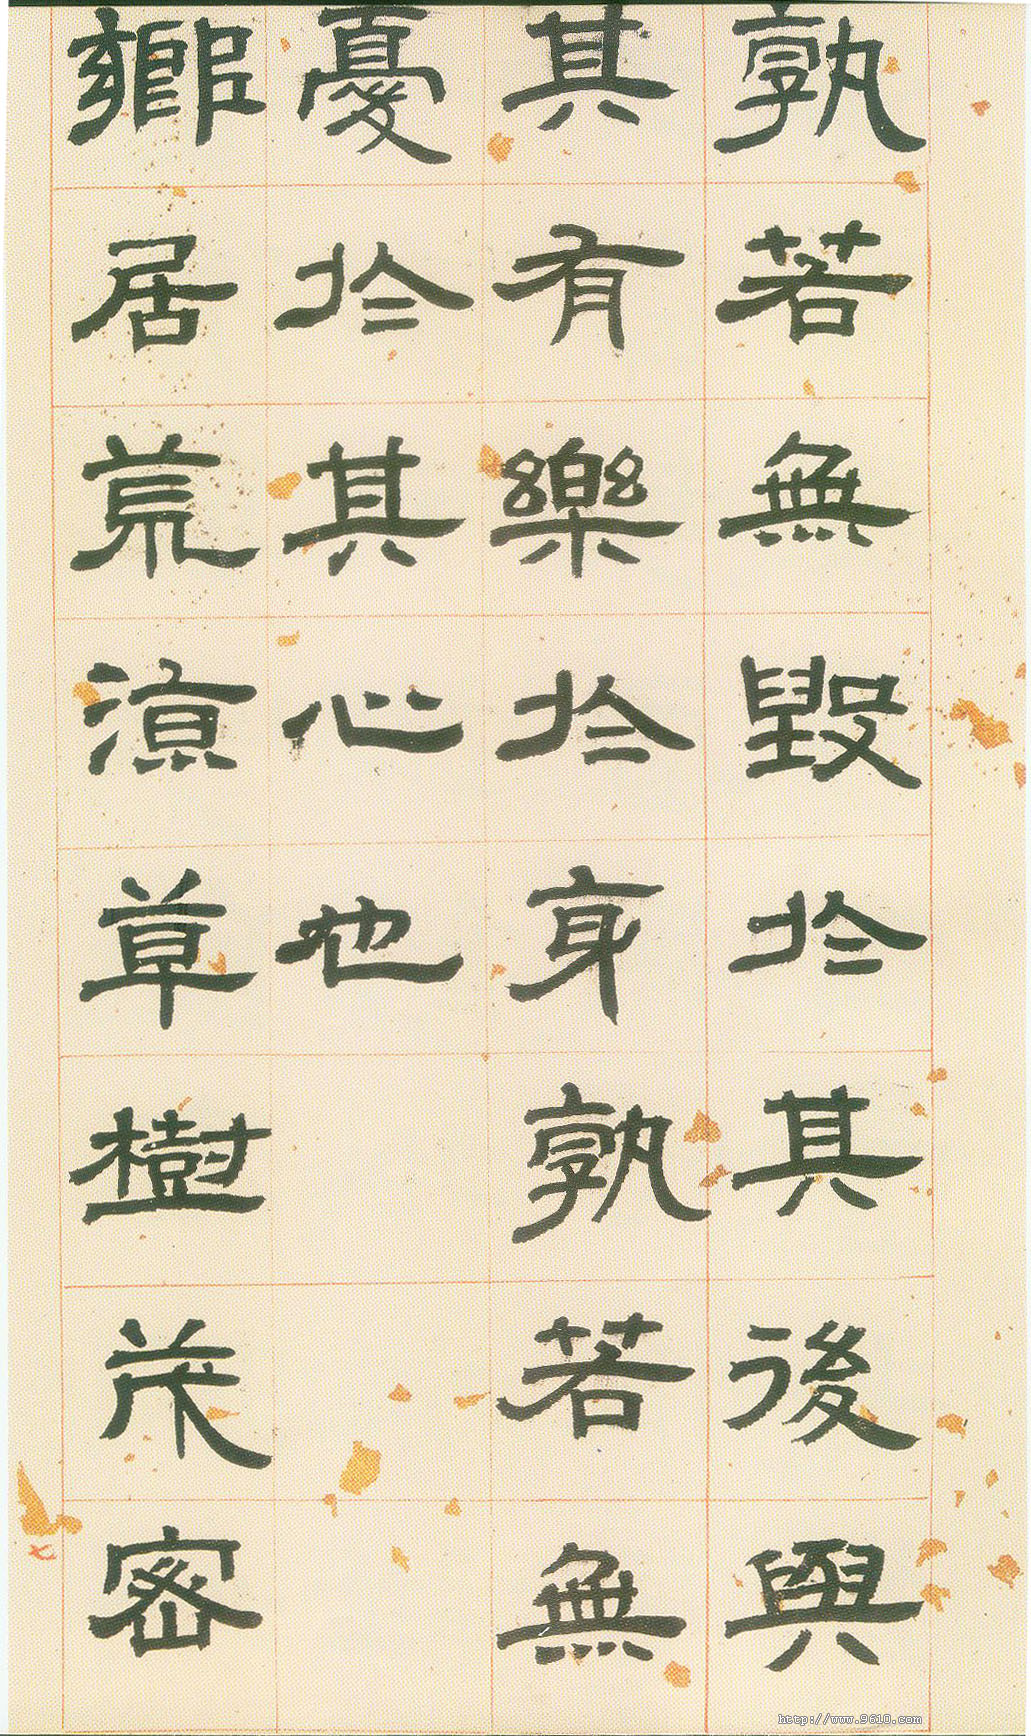 孰若無毀於其後與
其有樂於身孰若無
憂於其心也
鄉居荒涼草樹茂密
http://www.9610.com